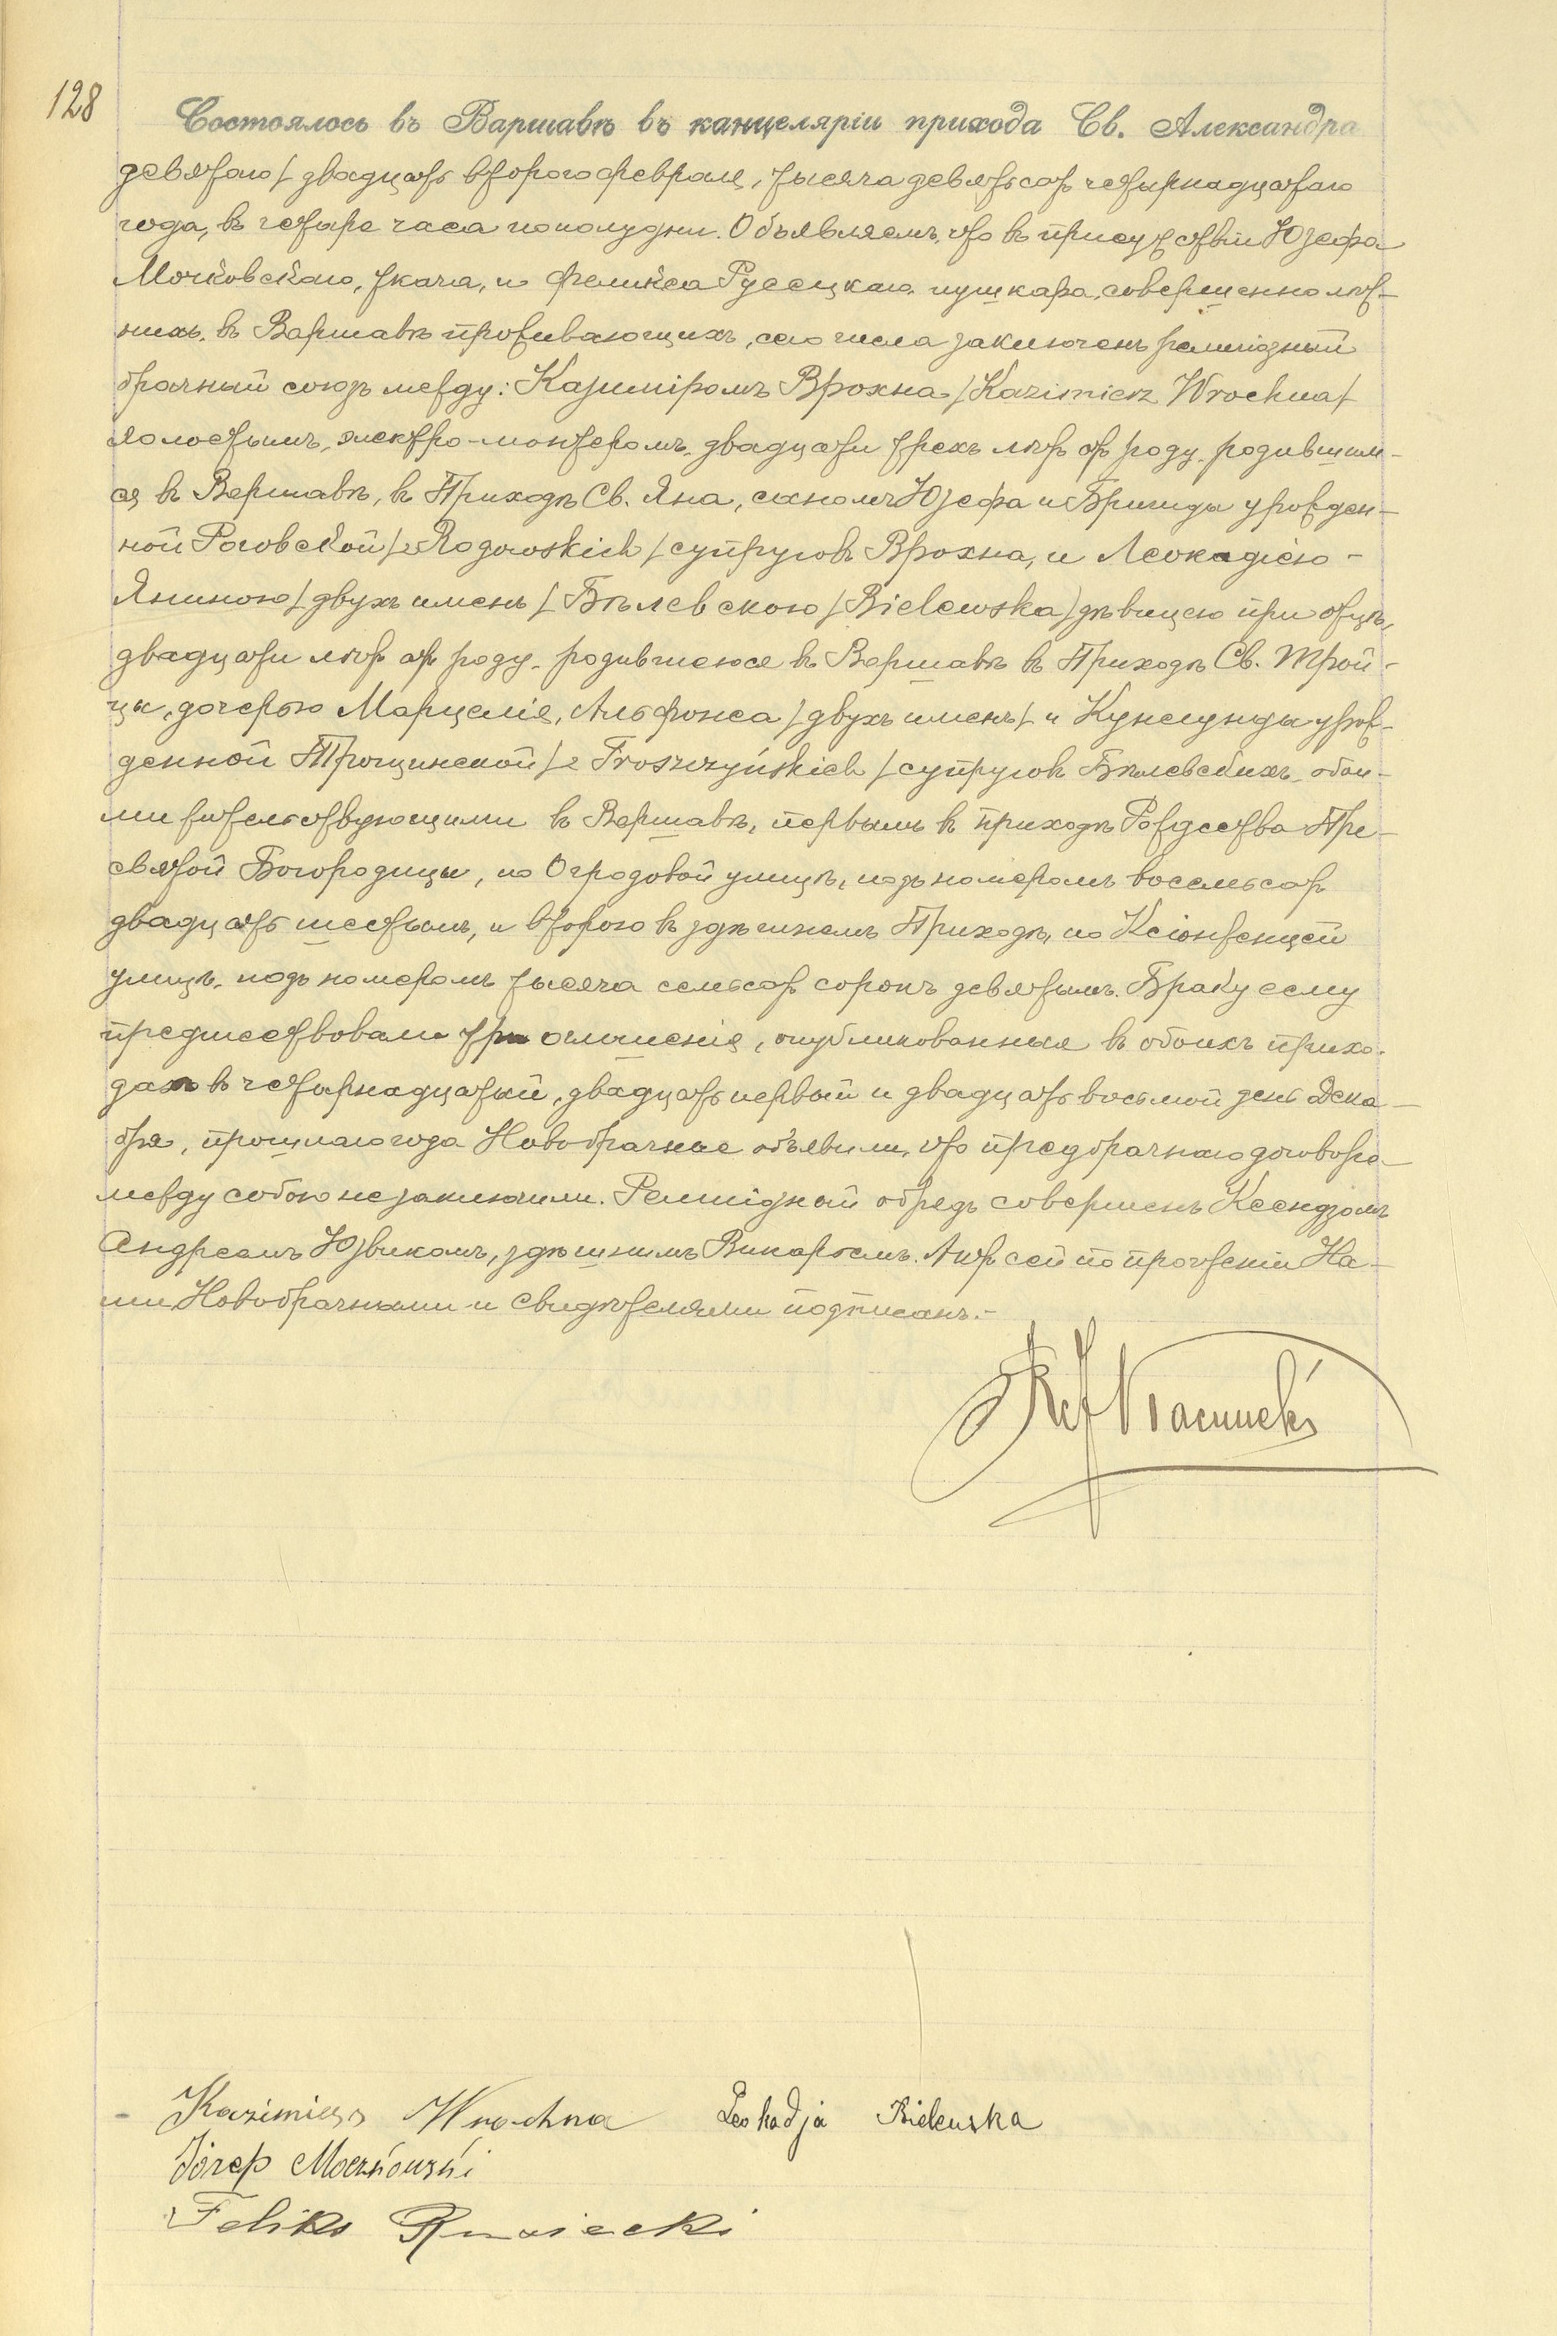 128
Состоялось въ Варшавѣ въ канцеляріи прихода Св. Александра
девятаго / двадцать второго февраля, тысяча девятьсотъ четырнадцатаго
года, въ четыре часа пополудни. Объявляемъ, что въ присутствіи Юзефа
Мочковскаго, ткача, и Феликса Русецкаго, пушкаря, совершеннолѣт-
нихъ, въ Варшавѣ проживающихъ, сего числа заключенъ религіозный
брачный союзъ между: Казиміромъ Врохна / Kazimierz Wrochna /
холостымъ, электро-монтеромъ, двадцати трехъ лѣтъ отъ роду, родившим-
ся въ Варшавѣ, въ Приходѣ Св. Яна, сыномъ Юзефа и Бригиды урожден-
ной Роговской / z Rogowskich / супруговъ Врохна, и Леокадіею -
Яниною / двухъ именъ / Бѣлевскою / Bielewska / дѣвицею при отцѣ,
двадцати лѣтъ отъ роду, родившеюся въ Варшавѣ въ Приходѣ Св. Трой-
цы, дочерью Марцелія, Альфонса / двухъ именъ / и Кунегунды урож-
денной Трощинской / z Troszczyńskich / супруговъ Бѣлевскихъ, обои-
ми жительствующими въ Варшавѣ, первымъ въ приходѣ Рождества Пре-
святой Богородицы, по Огродовой улицѣ, подъ номеромъ восемьсотъ
двадцать шестымъ, и второю въ здѣшнемъ Приходѣ, по Ксіонженцей
улицѣ, подъ номеромъ тысяча семьсотъ сорокъ девятымъ. Браку сему
предшествовали три оглашенія, опубликованныя въ обоихъ прихо-
дахъ въ четырнадцатый, двадцать первый и двадцать восьмой день Дека-
бря, прошлаго года Новобрачные объявили, что предбрачнаго договора
между собою не заключили. Религіозный обрядъ совершенъ Ксендзомъ
Андреемъ Юзвикомъ, здѣшнимъ Викаріемъ. Актъ сей по прочтеніи На-
ми Новобрачными и свидѣтелями подписанъ.-
Kazimierz Wrochna Leokadja Bielewska
Józef Moczkowski
Feliks Rusiecki